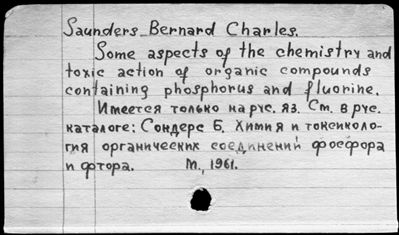 Saunders Bernard Charles.
Some aspects of the chemistry and
toxic action of organic compounds
containing phosphorus and fluorine.
Имеется только на рус. яз. См. в рус.
каталоге: Сондерс Б. Химия и токсиколо-
гия органических соединений фосфора
и фтора. М., 1961.